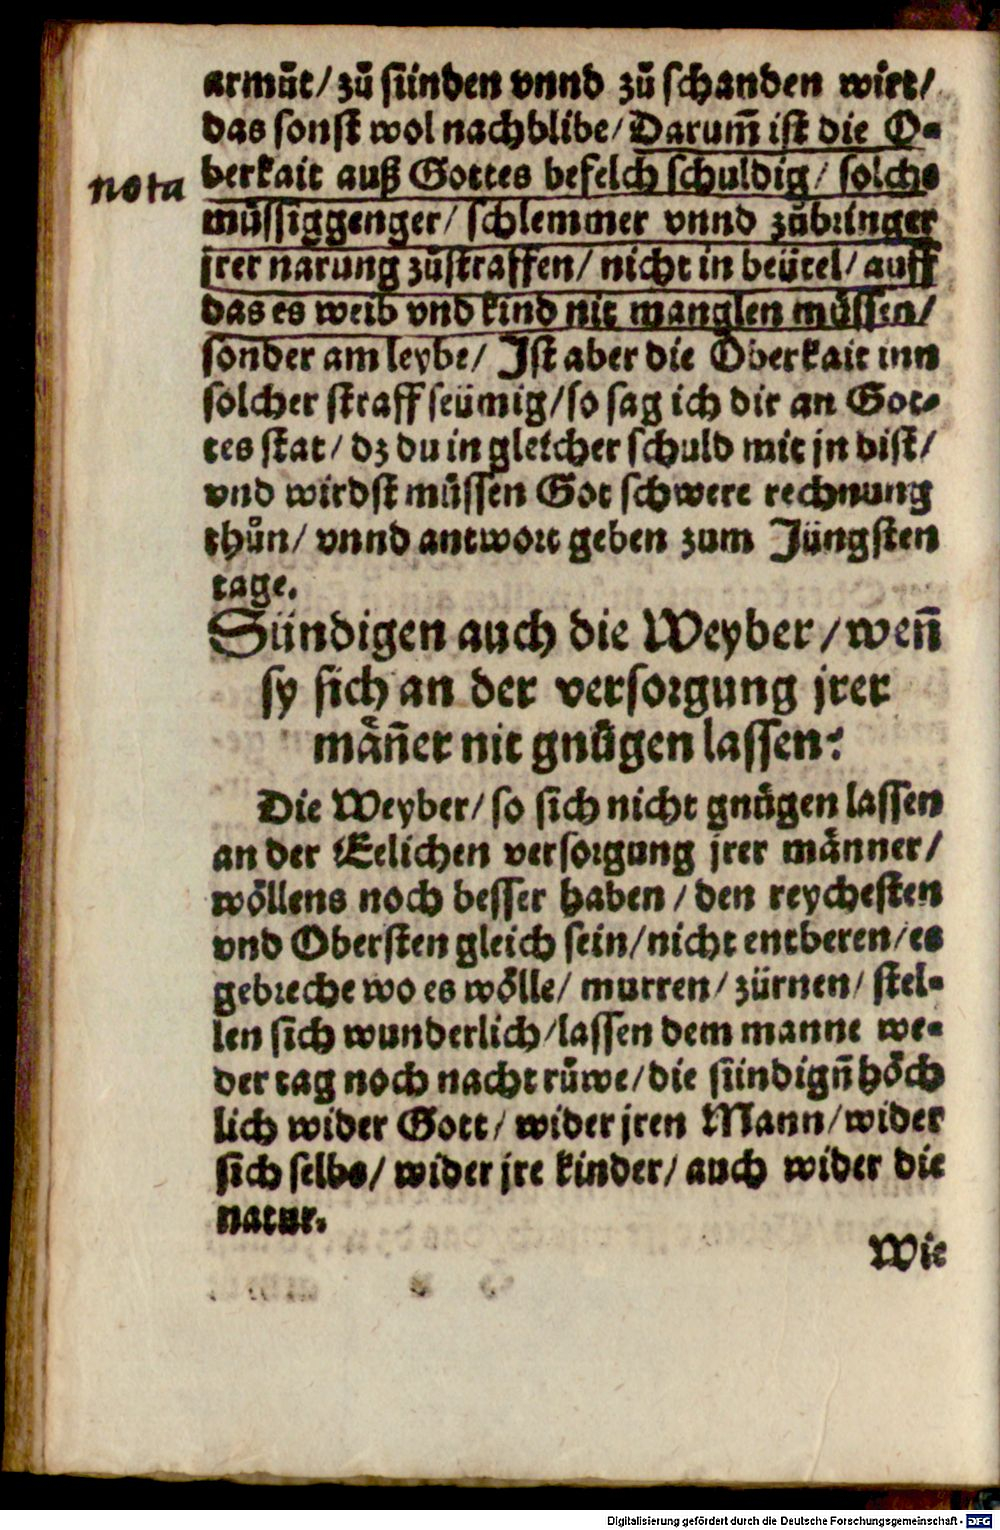 armůt/ zů sünden vnnd zů schanden wirt/
das sonst wol nachblibe/ Darum̃ ist die O⸗
berkait auß Gottes befelch schuldig/ solche
nota
müssiggenger/ schlemmer vnnd zůbringer
jrer narung zůstraffen/ nicht in beütel/ auff
das es weib vnd kind nit manglen müssen/
sonder am leybe/ Ist aber die Oberkait inn
solcher straff seümig/ so sag ich dir an Got⸗
tes stat/ dz du in gleicher schuld mit jn bist/
vnd wirdst müssen Got schwere rechnung
thůn/ vnnd antwort geben zum Jüngsten
tage.
Sündigen auch die Weyber/ weñ
sy sich an der versorgung jrer
mäñer nit gnůgen lassen?
Die Weyber/ so sich nicht gnůgen lassen
an der Eelichen versorgung jrer männer/
wöllens noch besser haben/ den reychesten
vnd Obersten gleich sein/ nicht entberen/ es
gebreche wo es wölle/ murren/ zürnen/ stel⸗
len sich wunderlich/ lassen dem manne we⸗
der tag noch nacht růwe/ die sündigñ höch
lich wider Gott/ wider jren Mann/ wider
sich selbs/ wider jre kinder/ auch wider die
natur.
Wie
Digitalisierung gefördert durch die Deutsche Forschungsgemeinschaft - DFG